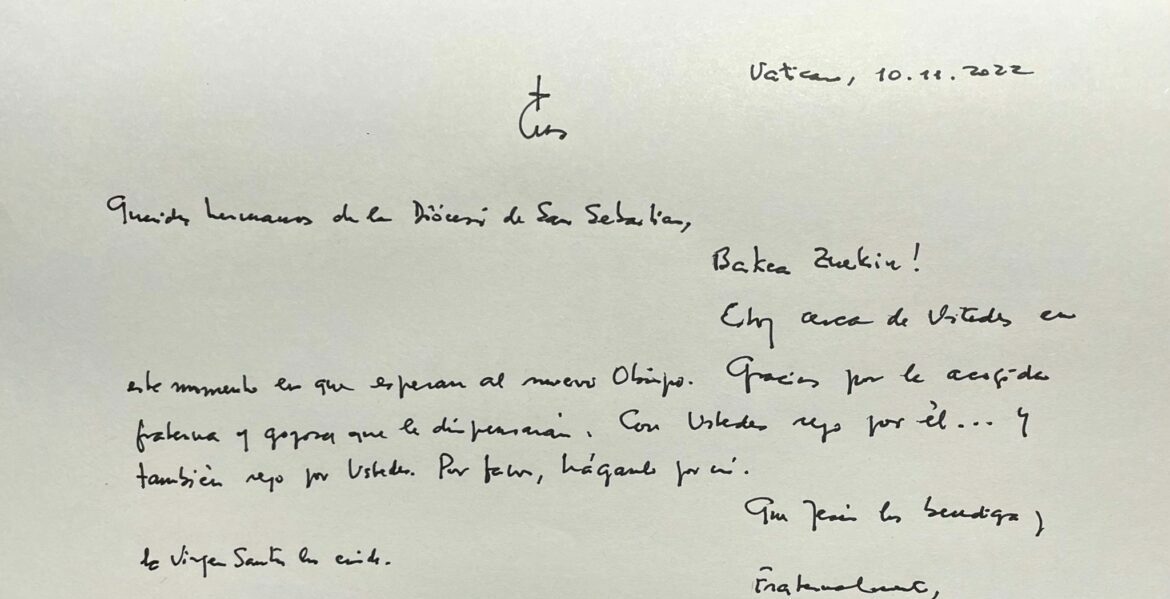 Vatican, 10.11.2022
Queridos hermanos de la Diócesi de San Sebastian,
Bakea Zuekin!
Estoy cerca de Ustedes en
este momento en que esperan al nuevo Obispo. Gracias por la acogida
fraterna y gozosa que le dispensarán. Con Ustedes rezo por él... y
también rezo por Ustedes. Por favor, háganlo por mí.
Que Jesús los bendiga y
la Virgen Santa los cuide.
Fraternalmente,